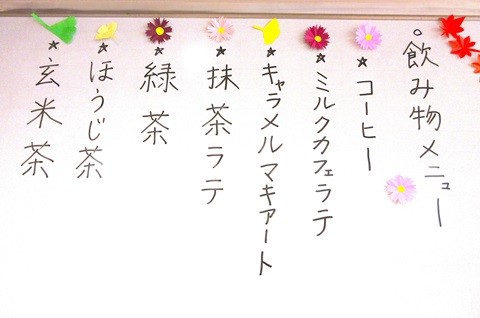 。飲み物メニュー
*コーヒー
*ミルクカフェラテ
*キャラメルマキアート
*抹茶ラテ
*緑茶
*ほうじ茶
*玄米茶